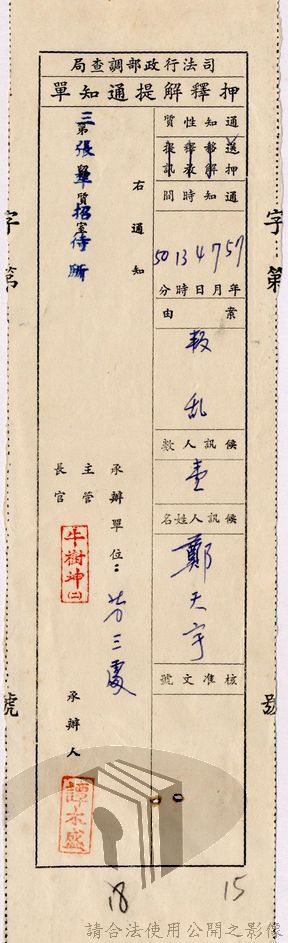 司法行政部調查局
押釋解提通知單
通知性質
送押
移解
釋放
提訊
通知時間
57年7月4日13時50分
案由
叛乱
候訊人數
壹
候訊人姓名
鄭天宇
核准文號
右通知
三張犁招待所
第留質室
承辦單位：
第三處
主管
長官
牛樹坤(二)
承辦人
字第
號
字第
號
18
15
請合法使用公開之影像